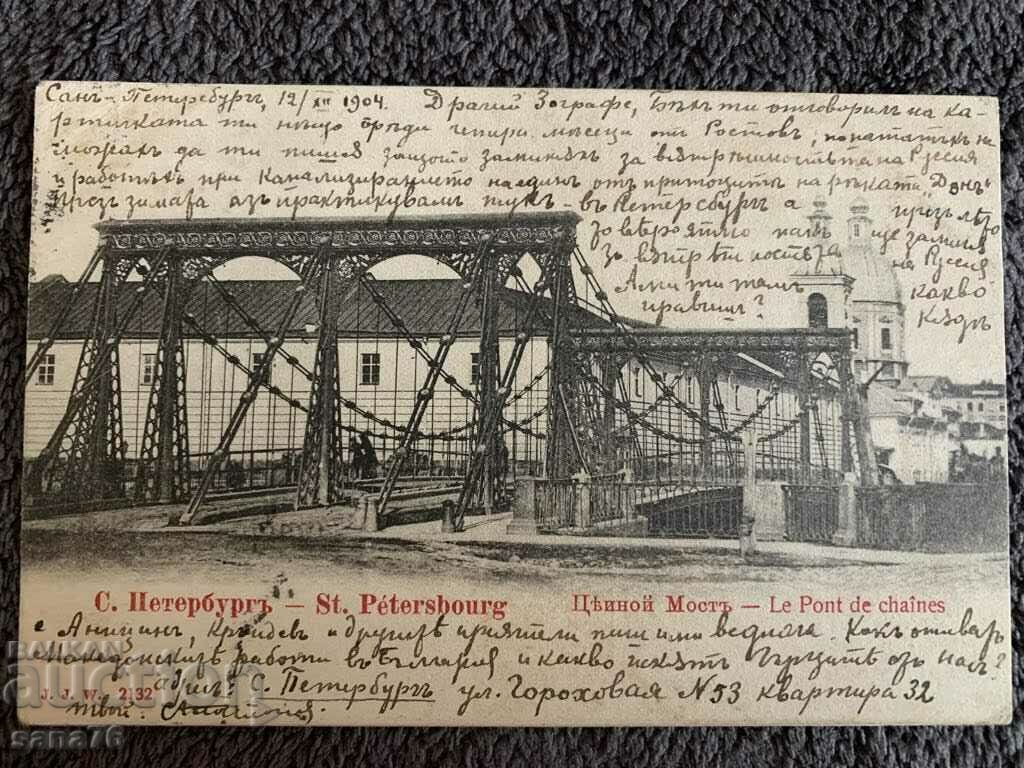 Санъ-Петеребургъ, 12/XII 1904. Драгий Зографе, Бѣхъ ти отговорилъ на ка-
ртичката ти нѣщо преди четири мѣсеци отъ Ростовъ, по-нататъкъ не
можахъ да ти пиша защото заминѣхъ за вѫтрѣшностьта на Руссия
и работѣхъ при канализирането на единъ отъ притоцитѣ на рѣката „Донъ“
Презъ зимата азъ практикувамъ тукъ - въ Петерсбургъ а презъ лѣто
то вѣроятно пакъ ще замина
въ вѫтрѣшностьта на Руссия
Ами ти тамъ какво
правиш?
С. Петербургъ — St. Pétersbourg Цѣпной Мостъ — Le Pont de chaînes
с и другитѣ приятели пиши ми веднага. Какъ отиватъ
македонскитѣ работи въ България и какво искатъ гърцитѣ отъ насъ?
J. J. W. 2132 С. Петербургъ ул. Гороховая N 53 квартира 32
Твой:
BALKAN
auction
sana76